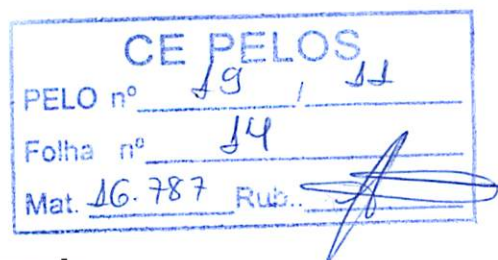 CE PELOS
PELO nº 19 / 11
Folha nº 14
Mat. 16.787 Rub..